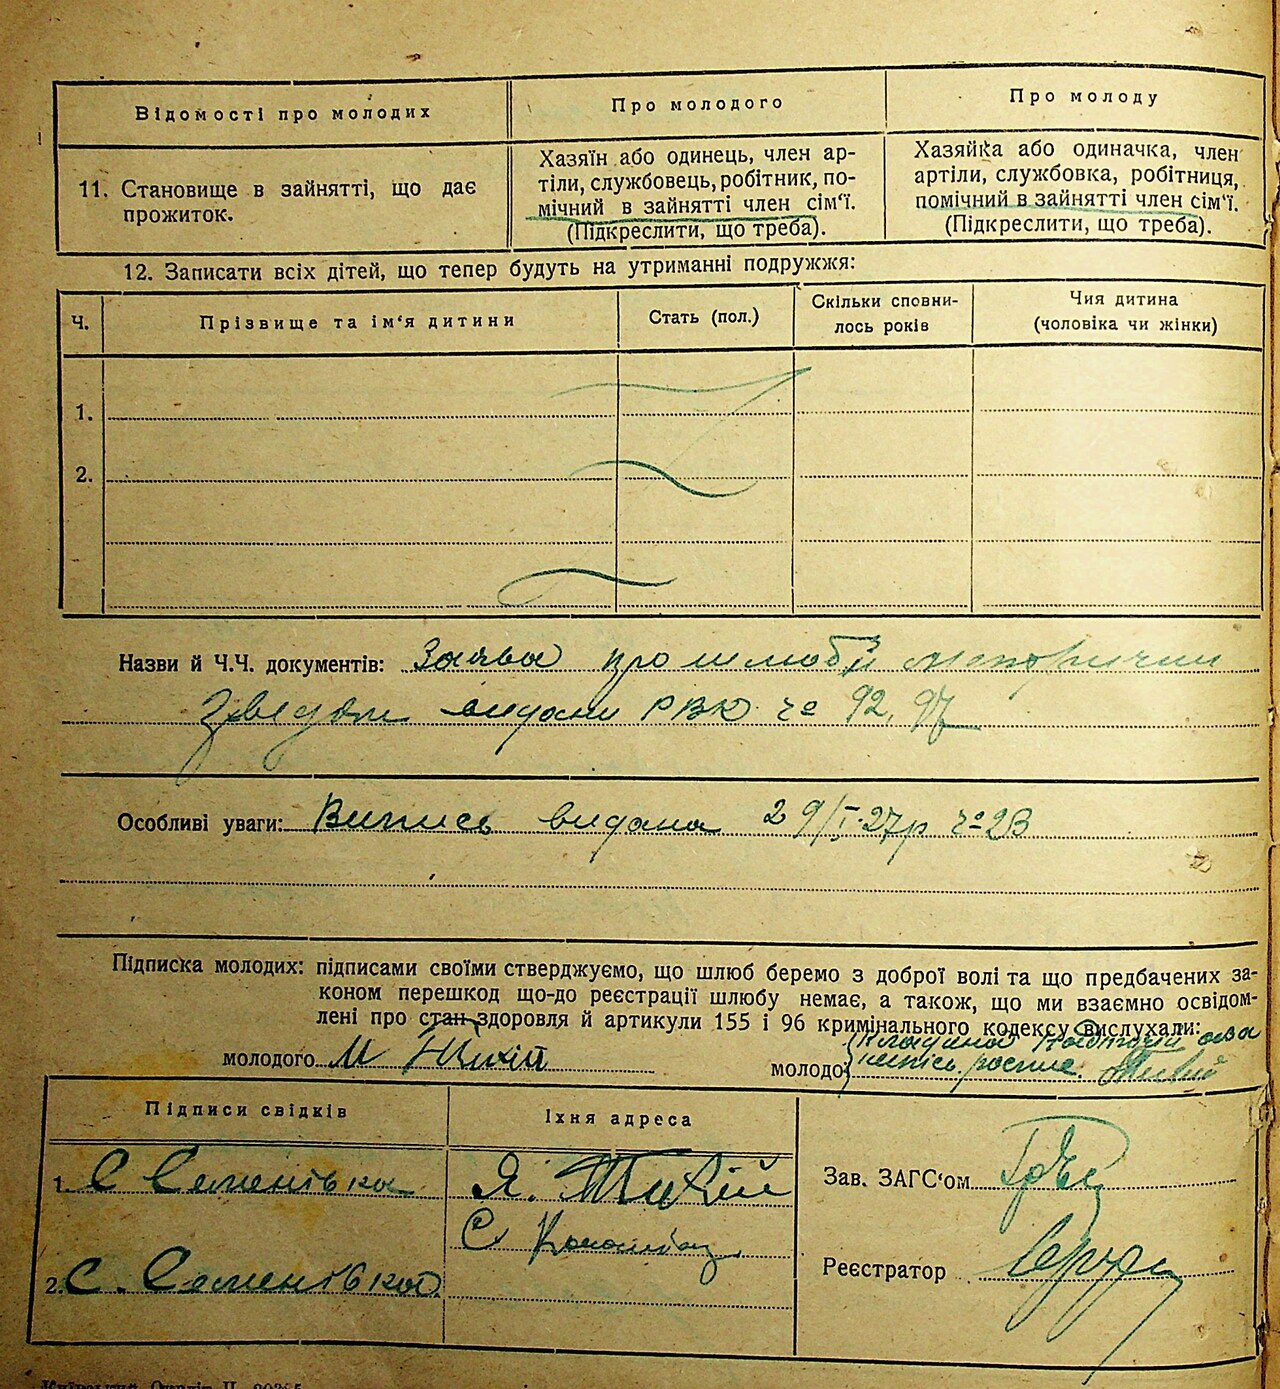 Відомості про молодих
Про молодого
Про молоду
11. Становище в зайнятті, що дає
прожиток.
Хазяїн або одинець, член ар-
тіли, службовець, робітник, по-
мічний в зайнятті член сім'ї.
(Підкреслити, що треба).
Хазяйка або одиначка, член
артіли, службовка, робітниця,
помічний в зайнятті член сім'ї.
(Підкреслити, що треба).
12. Записати всіх дітей, що тепер будуть на утриманні подружжя:
Ч.
Прізвище та ім'я дитини
Стать (пол.)
Скільки сповни-
лось років
Чия дитина
(чоловіка чи жінки)
1.
2.
Назви й Ч.Ч. документів: Заява про шлюб й
видани РВК ч° 92, 97
Особливі уваги: Випись видана 29/I-27р ч° 23
Підписка молодих: підписами своїми стверджуємо, що шлюб беремо з доброї волі та що предбачених за-
коном перешкод що-до реєстрації шлюбу немає, а також, що ми взаємно освідом-
лені про стан здоровля й артикули 155 і 96 кримінального кодексу вислухали:
молодого М
молодої
Підписи свідків
Їхня адреса
1. С Семенівка
Я. Тихій
С
2. С. Семенівкой
Зав. ЗАГС'ом
Реєстратор